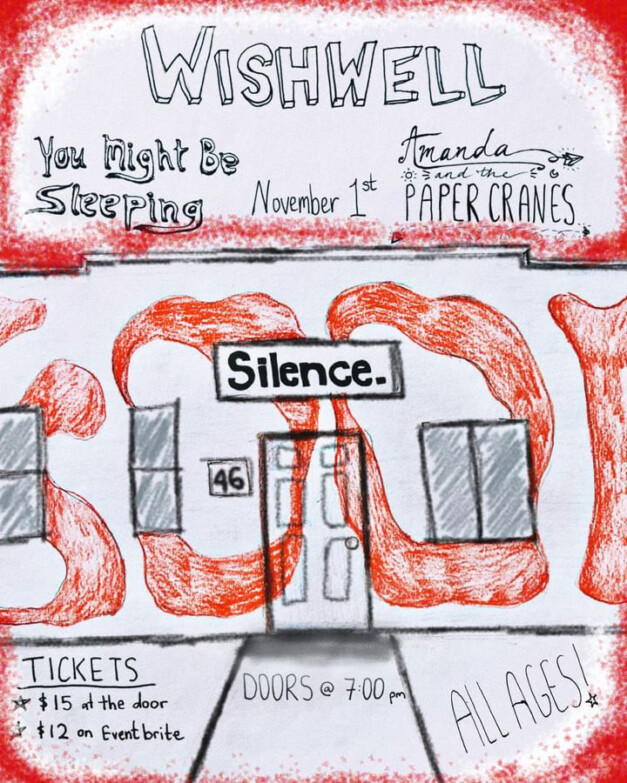 WISHWELL
You Might Be
Sleeping
November 1st
Amanda
and the
PAPER CRANES
Silence.
46
TICKETS
$15 at the door
$12 on Eventbrite
DOORS @ 7:00 pm
ALL AGES!